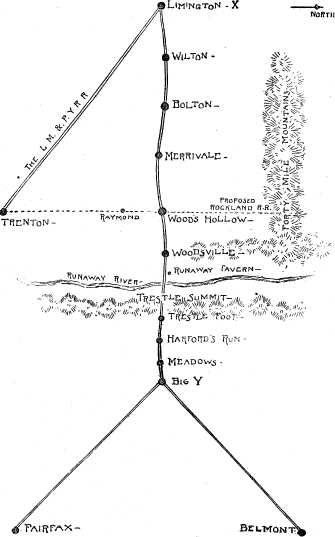 LIMINGTON - X
NORTH
WILTON -
BOLTON -
THE L. M. & P. Y. R R
MERRIVALE -
FORTY MILE MOUNTAINS
PROPOSED
ROCKLAND R.R.
TRENTON -
RAYMOND
WOODS HOLLOW -
WOODSVILLE -
RUNAWAY RIVER -
RUNAWAY CAVERN -
TRESTLE SUMMIT -
TRESTLE FOOT -
HARFORD'S RUN -
MEADOWS -
BIG Y
FAIRFAX -
BELMONT